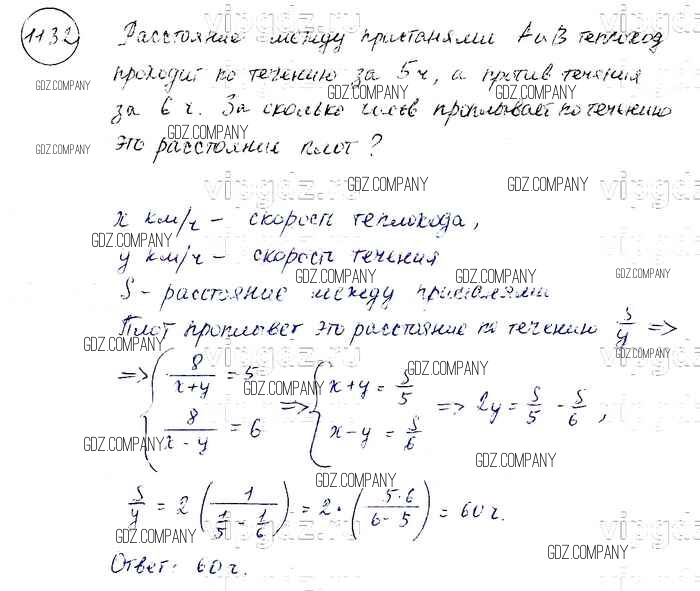 1132
Расстояние между пристанями А и В теплоход
проходит по течению за 5 ч, а против течения
за 6 ч. За сколько часов проплывает по течению
это расстояние плот?
х км/ч – скорость теплохода,
у км/ч – скорость течения
S - расстояние между пристанями
Плот проплывет это расстояние по течению S/y =>
=> { 8/(x+y) = 5 => { x+y = S/5 => 2y = S/5 - S/6,
8/(x-y) = 6 x-y = S/6
S/y = 2 (1/(1/5 - 1/6)) = 2 · (5·6/(6-5)) = 60 ч.
Ответ: 60 ч.
GDZ.COMPANY
vipgdz.ru